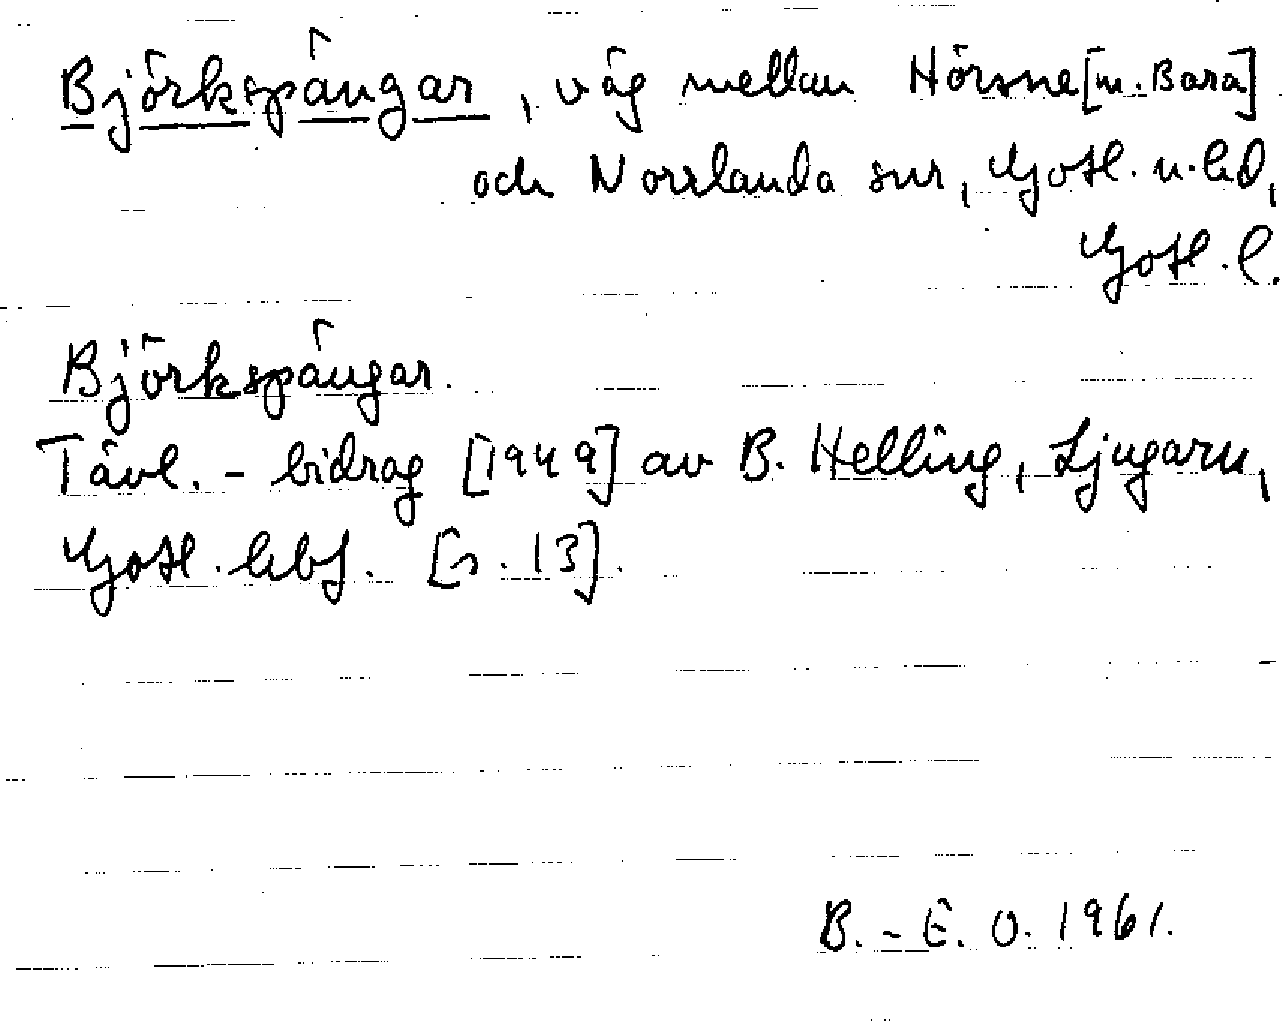 Björkspängar, väg mellan Hörsne [m. Bara]
och Norrlanda snr, Gotl. n. hd,
Gotl. l.
Björkspängar.
Tävl. - bidrag [1949] av B. Helling, Ljugarn,
Gotl. hbf. [s. 13].
B. - E. O. 1961.